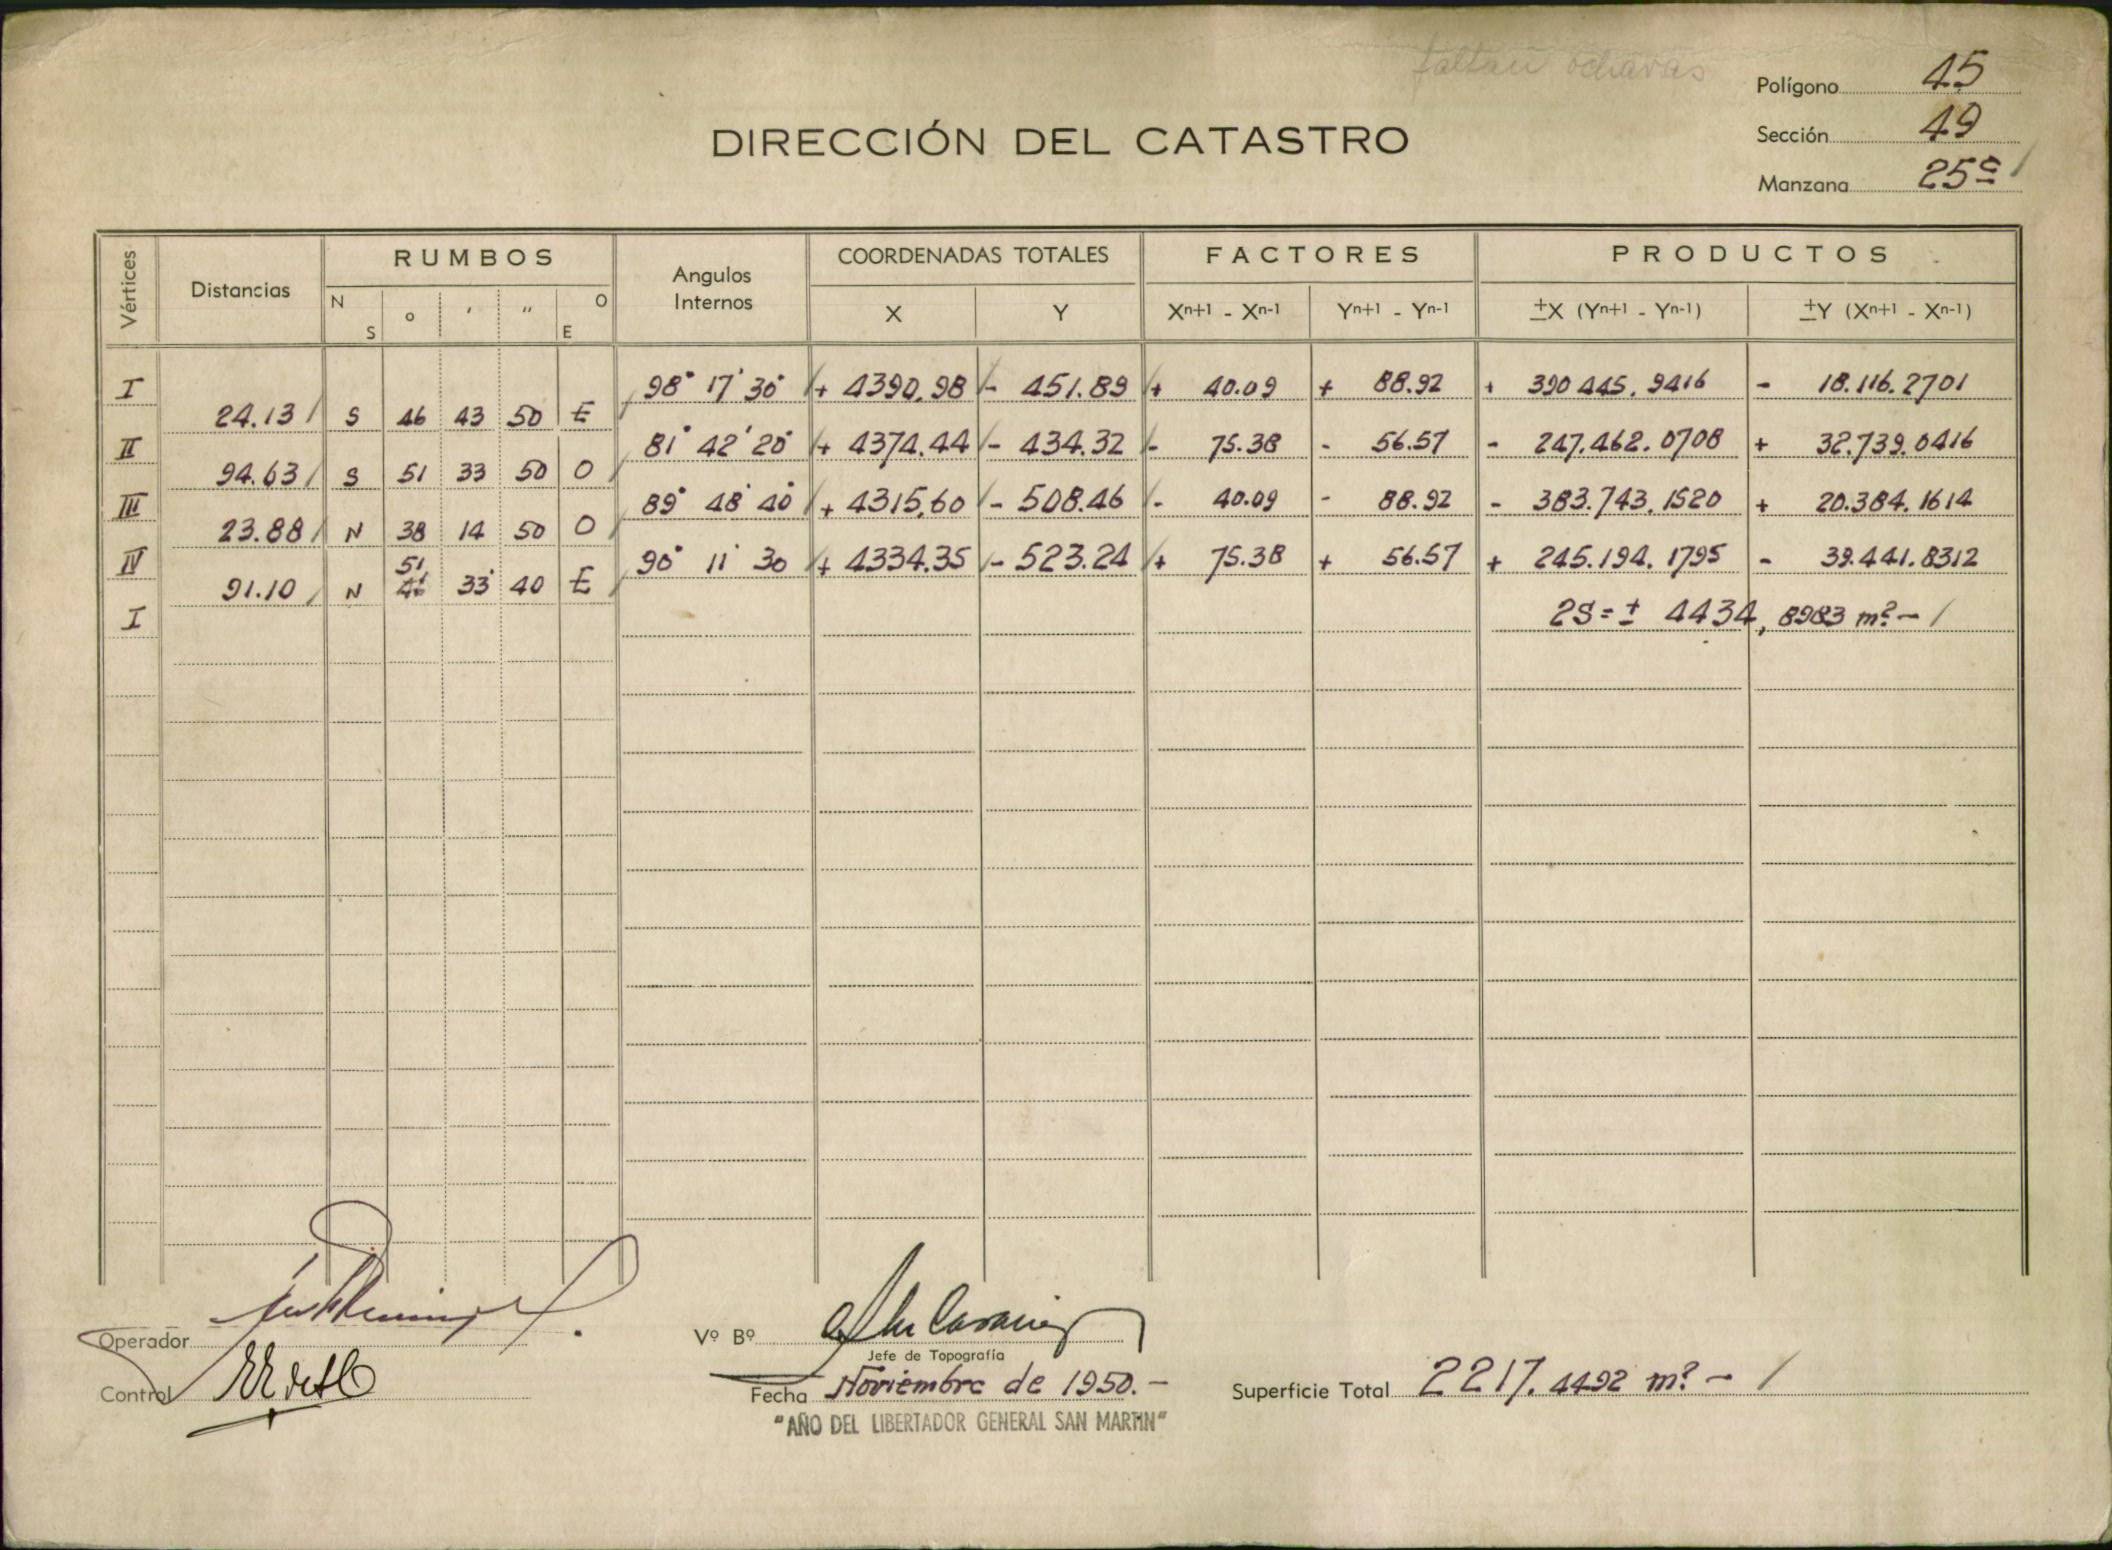 faltan ochavas
Polígono 45
Sección 49
Manzana 25c
DIRECCIÓN DEL CATASTRO
Vértices Distancias RUMBOS Angulos Internos COORDENADAS TOTALES FACTORES PRODUCTOS
N S o ' '' O E X Y Xn+1 - Xn-1 Yn+1 - Yn-1 ±X (Yn+1 - Yn-1) ±Y (Xn+1 - Xn-1)
I 98° 17' 30" + 4390.98 - 451.89 + 40.09 + 88.92 + 390445.9416 - 18.116.2701
24.13 S 46 43 50 E
II 81° 42' 20" + 4374.44 - 434.32 - 75.38 - 56.57 - 247.462.0708 + 32.739.0416
94.63 S 51 33 50 O
III 89° 48' 40" + 4315.60 - 508.46 - 40.09 - 88.92 - 383.743.1520 + 20.384.1614
23.88 N 38 14 50 O
IV 90° 11' 30 + 4334.35 - 523.24 + 75.38 + 56.57 + 245.194.1795 - 39.441.8312
91.10 N 51 33 40 E
I 2S = ± 4434,8983 m² -
Operador
Control
Vº Bº
Jefe de Topografía
Fecha Noviembre de 1950.-
"AÑO DEL LIBERTADOR GENERAL SAN MARTIN"
Superficie Total 2217.4492 m² -